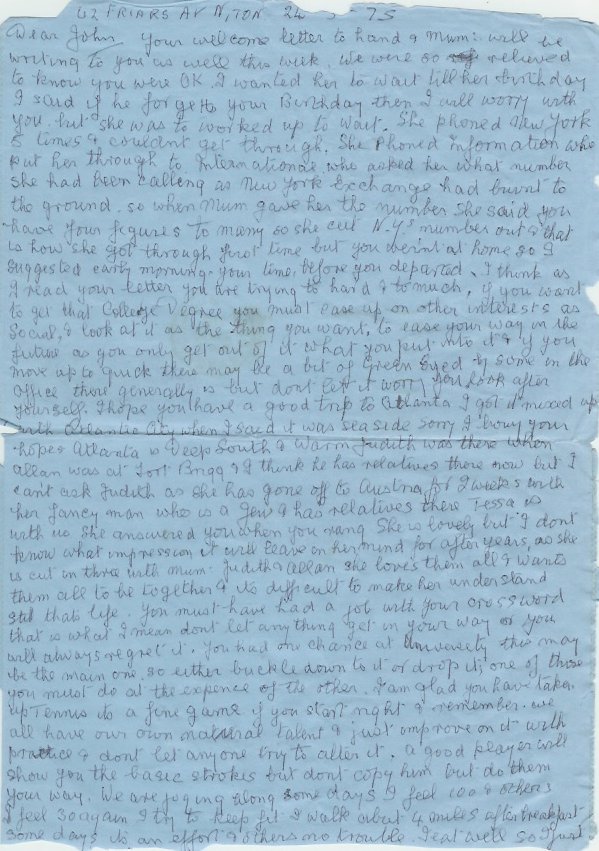 42 FRIARS AV N,TON 24 3 75
Dear John, Your welcome letter to hand & Mum: will be
writing to you as well this week. We were so relieved
to know you were OK. I wanted her to wait till her birthday
I said if he forgets your Birthday then I will worry with
you. but she was to worked up to wait. She phoned New York
5 times & couldnt get through. She phoned Information who
put her through to Internationa, who asked her what number
she had been calling as New York Exchange had burnt to
the ground. so when Mum gave her the number she said you
have four figures to many so she cut N.Ys number out & that
is how she got through first time but you wer'nt at home so I
suggested early morning. your time, before you departed. I think as
I read your letter you are trying to hard & to much, if you want
to get that College Degree you must ease up on other interests as
Social, & look at it as the thing you want, to ease your way in the
future as you only get out of it what you put into it & if you
move up to quick there may be a bit of Green Eyed by some in the
Office there generally is but dont let it worry you look after
yourself. I hope you have a good trip to Atlanta I got it mixed up
with Atlantic City when I said it was sea side sorry I bring your
hopes Atlanta is Deep South & Warm Judith was there when
allan was at Fort Brigg & I think he has relatives there now but I
can't ask Judith as she has gone off to Austria for 2 weeks with
her fancy man who is a Jew & has relatives there Tessa is
with us she answered you when you rang She is lovely but I dont
know what impression it will leave on her mind for after years, as she
is cut in three with Mum: Judith & Allan she loves them all & wants
them all to be together & its difficult to make her understand
still thats life. You must have had a job with your crossword
that is what I mean dont let anything get in your way or you
will always regret it. You had one chance at University this may
be the main one, so either buckle down to it or drop it, one of those
you must do at the expence of the other. I am glad you have taken
up Tennis its a fine game if you start right & remember. we
all have our own natural talent & just improve on it with
practice & dont let anyone try to alter it. a good player will
show you the basic strokes but dont copy him but do them
your way. We are joging along some days I feel 100 & others
I feel 30 again I try to keep fit I walk about 4 miles after breakfast
some days its an effort & others no trouble. I eat well so I just